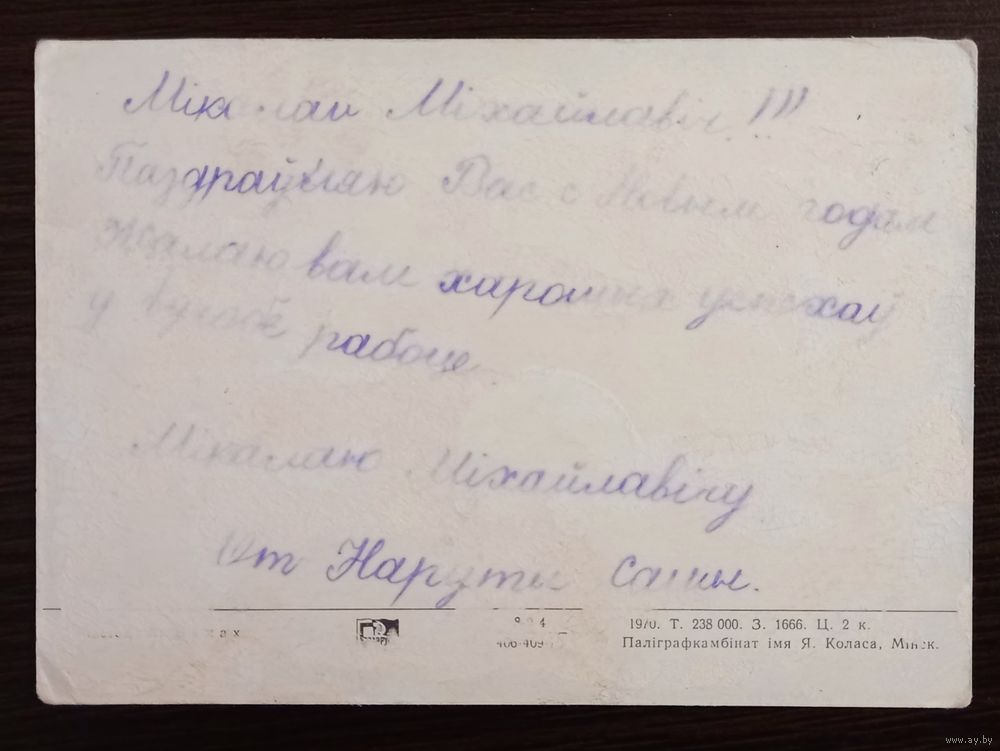 Мікалай Міхайлавіч!!!
Паздраўляю Вас с Новым годам
Жалаю вам харошых успехаў
у вучобе рабоце.
Мікалаю Міхайлавічу
От Наруты Сашы.
1970. Т. 238 000. З. 1666. Ц. 2 к.
Паліграфкамбінат імя Я. Коласа, Мінск.
www.ay.by